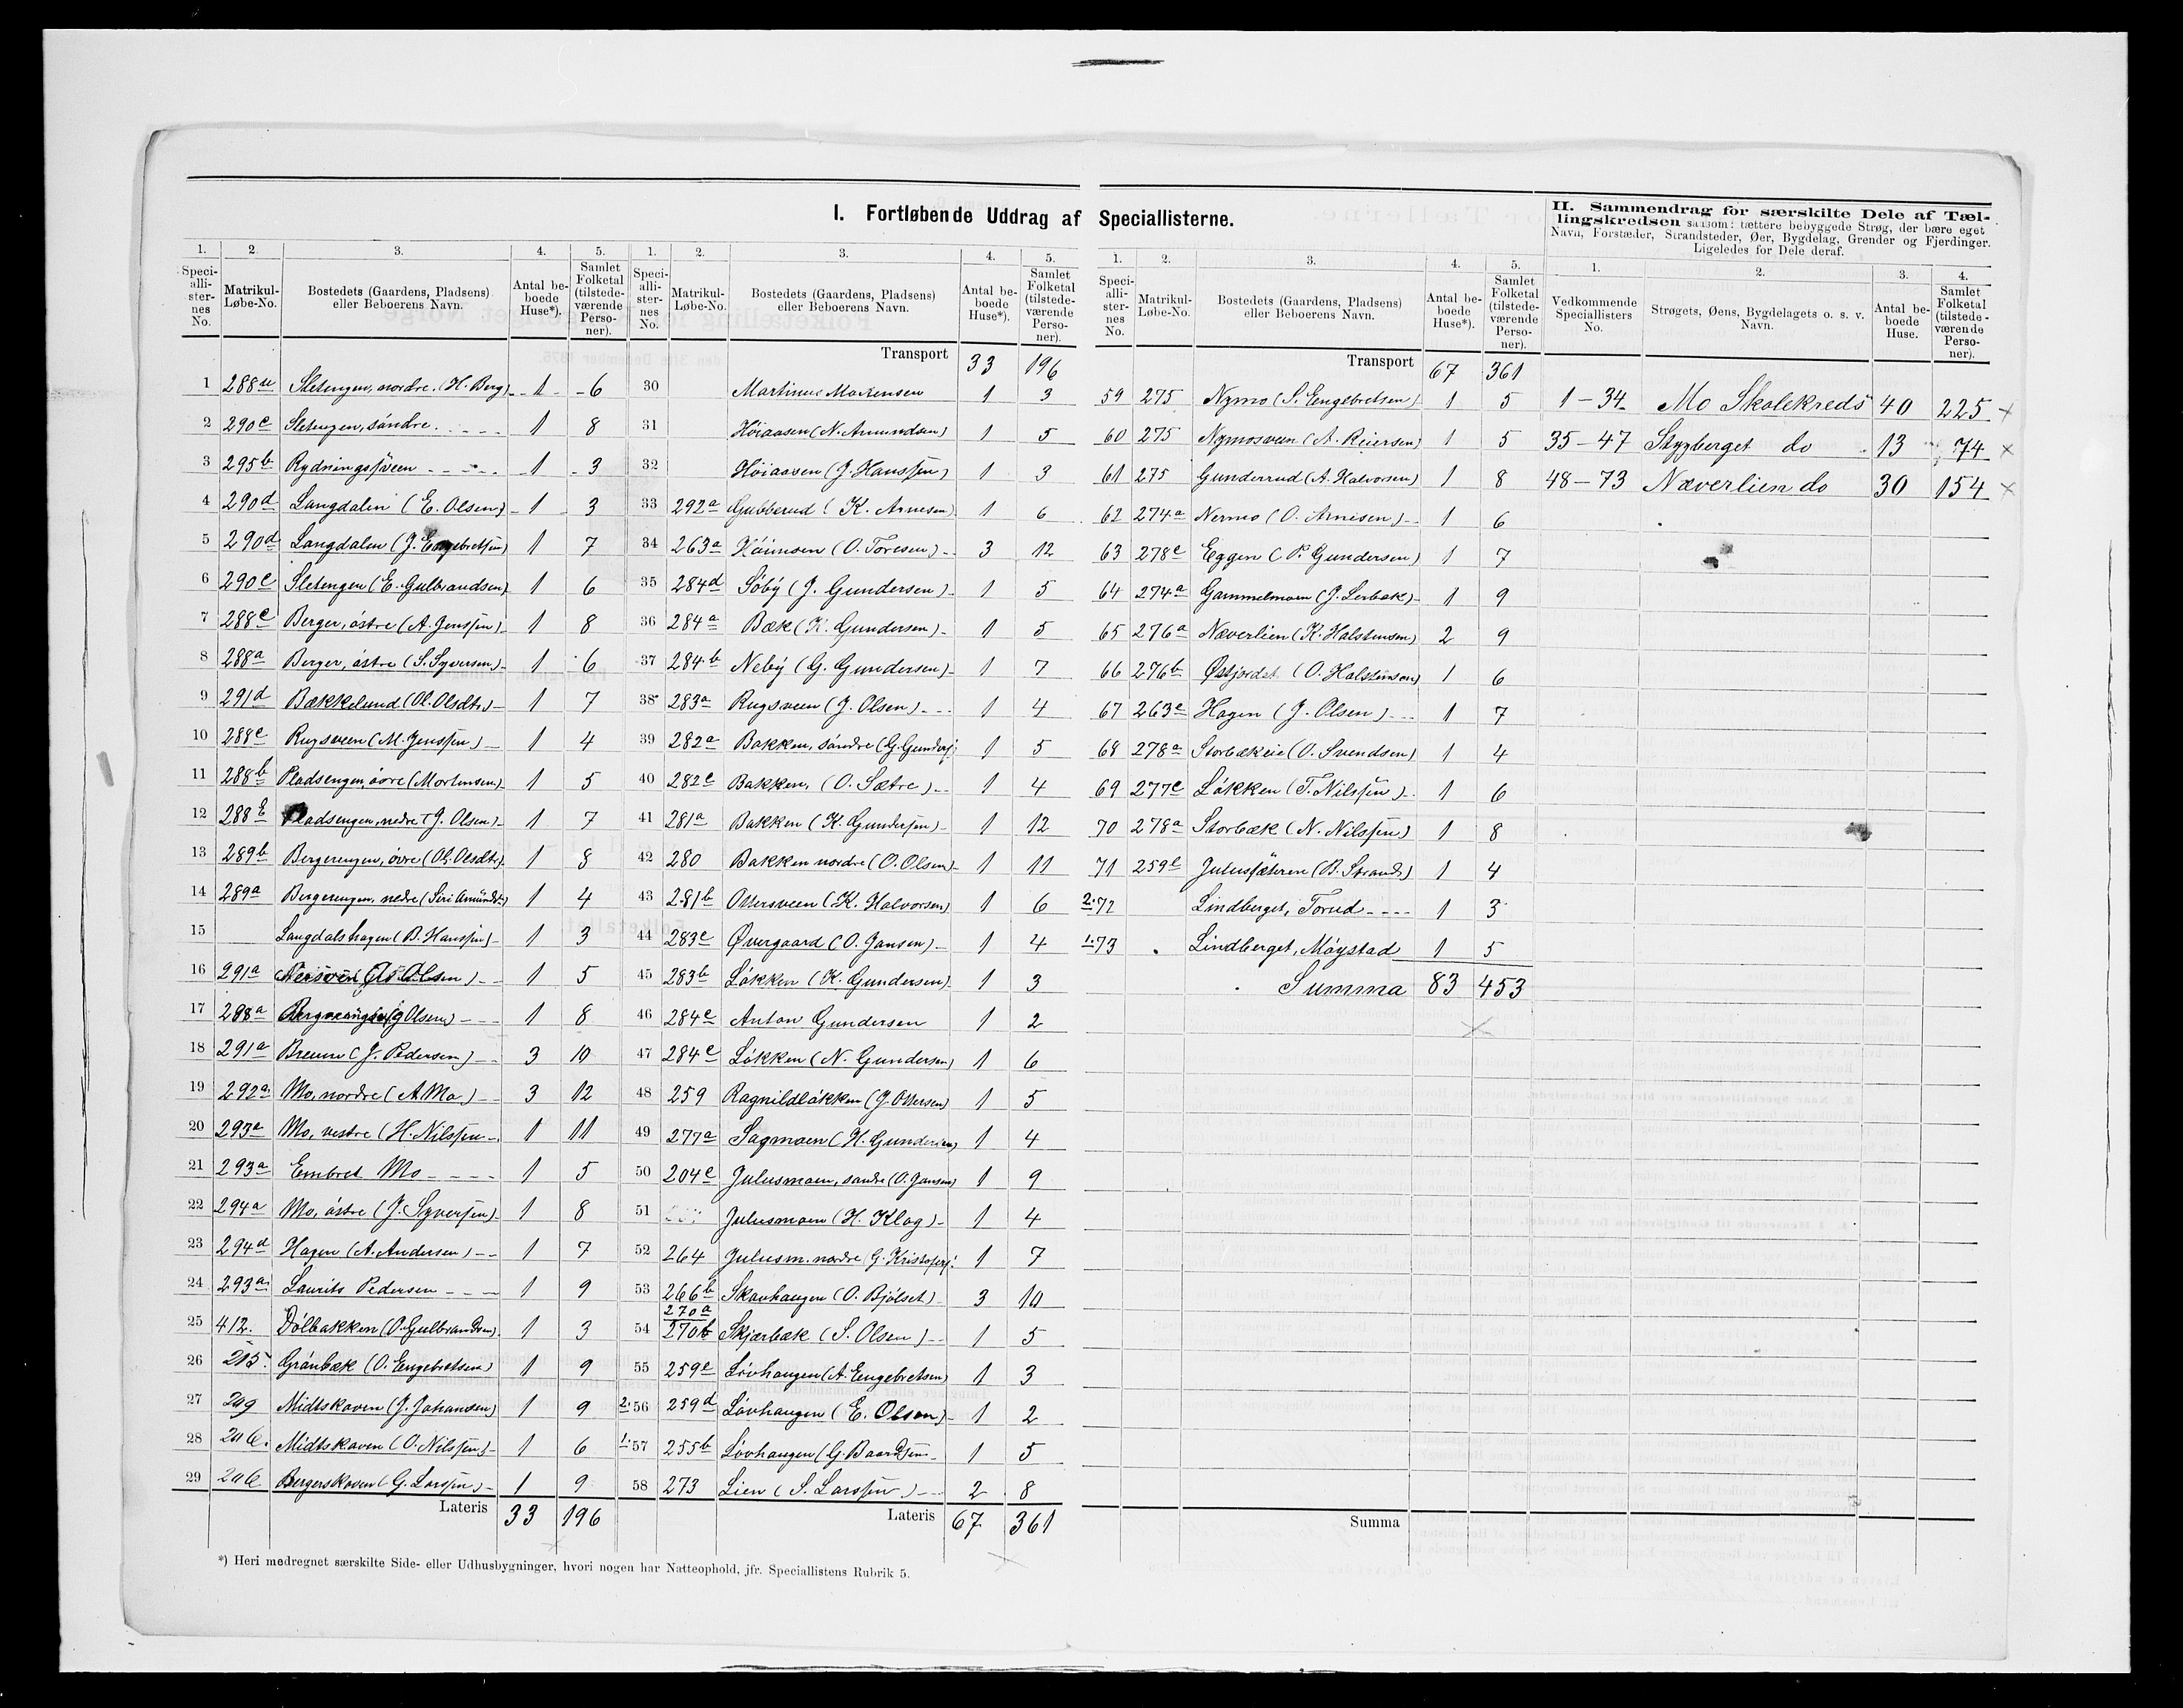 I. Fortløbende Uddrag af Speciallisterne.
1. 2. 3. 4. 5.
Speciallisternes No. Matrikul-Løbe-No. Bostedets (Gaardens, Pladsens) eller Beboerens Navn. Antal beboede Huse*). Samlet Folketal (tilstedeværende Personer).
1 288 Sletengen, nordre. (H. Berg) 1 6
2 290c Sletengen, søndre 1 8
3 295b Rydningssveen 1 3
4 290d Langdalen (E. Olsen) 1 3
5 290d Langdalen (J. Engebretsen) 1 7
6 290c Sletengen (E. Gulbrandsen) 1 6
7 288c Berger, østre (A. Jenssen) 1 8
8 288a Berger, østre (S. Syversen) 1 6
9 291d Bækkelund (Ol. Olsdtr) 1 7
10 288c Rugsveen (M. Jenssen) 1 4
11 288b Pladsengen, øvre (Mortensen) 1 5
12 288 Pladsengen, nedre (J. Olsen) 1 7
13 289b Bergerengen, øvre (Ol. Olsdtr) 1 8
14 289a Bergerengen, nedre (Siri Amundsd) 1 4
15 Langdalshagen (B. Hanssen) 1 3
16 291a Nersveen Olsen) 1 5
17 288a Bergerengen (J Olsen) 1 8
18 291a Breum (J. Pedersen) 3 10
19 292a Mo, nordre (A Mo) 3 12
20 293a Mo, vestre (H. Nilssen 1 11
21 293a Embret Mo 1 5
22 294a Mo, østre (J. Syversen) 1 8
23 294d Hagen (A. Andersen) 1 7
24 293a Laurits Pedersen 1 9
25 412. Dølbakken (O. Gulbrandsen) 1 3
26 215. Grønbæk (O. Engebretsen) 1 9
27 Midtskoven (J. Johansen) 1 9
28 Midtskoven (O. Nilssen) 1 6
29 Bergerskoven (G. Larssen) 1 9
Lateris 33 196
1. 2. 3. 4. 5.
Speciallisternes No. Matrikul-Løbe-No. Bostedets (Gaardens, Pladsens) eller Beboerens Navn. Antal beboede Huse*). Samlet Folketal (tilstedeværende Personer).
Transport 33 196
30 Martinus Mortensen 1 3
31 Høiaasen (N. Amundsen) 1 5
32 Høiaasen (J. Hanssen) 1 3
33 292a Gubberud (K. Arnesen) 1 6
34 263a (O. Toresen) 3 12
35 284d Søby (J. Gundersen) 1 5
36 284a Bæk (K. Gundersen) 1 5
37 284b Neby (G. Gundersen) 1 7
38 283a Rugsveen (J. Olsen) 1 4
39 282a Bakken, søndre (G. Gunders: 1 5
40 282c Bakken, (O. Sætre) 1 4
41 281a Bakken (K. Gundersen) 1 12
42 280 Bakken nordre (O. Olsen) 1 11
43 281b Ottersveen (K. Halvorsen) 1 6
44 283c Øvergaard (O. Jansen) 1 4
45 283b Løkken (K. Gundersen) 1 3
46 284c Anton Gundersen 1 2
47 284c Løkken (N. Gundersen) 1 6
48 259 Ragnildløkken (J. Ottersen) 1 5
49 277a Sagmoen (H. Gundersen) 1 4
50 204c Julusmoen, søndre (O. Jansen) 1 9
51 Julusmoen (H. Klog) 1 4
52 264 Julusm. nordre G. Kristofers: 1 7
53 266b Skavhaugen (O. Bjølset) 3 10
54 270a 270b Skjærbæk (S. Olsen) 1 5
55 259e Løvhaugen (A. Engebretsen) 1 3
2. 56 259d Løvhaugen (E. Olsen) 1 2
1. 57 255b Løvhaugen (G. Baardsen 1 5
58 273 Lien (S. Larssen) 2 8
Lateris 67 361
1. 2. 3. 4. 5.
Speciallisternes No. Matrikul-Løbe-No. Bostedets (Gaardens, Pladsens) eller Beboerens Navn. Antal beboede Huse*). Samlet Folketal (tilstedeværende Personer).
Transport 67 361
59 275 Nymo (S. Engebretsen) 1 5
60 275 Nymosveen (A. Reiersen) 1 5
61 275 Gunderrud (A. Halvorsen) 1 8
62 274a Nermo (O. Arnesen) 1 6
63 278c Eggen (P. Gundersen) 1 7
64 274a Gammelmoen (J. Lerbæk) 1 9
65 276a Næverlien (K. Halstensen) 2 9
66 276b Østjordet (O. Halstensen) 1 6
67 263c Hagen (J. Olsen) 1 7
68 278a Storbækeie (O. Svendsen) 1 4
69 277c Løkken (T. Nilssen) 1 6
70 278a Storbæk (N. Nilssen) 1 8
71 259 Julussætren (B. Strand) 1 4
2. 72 Lindberget, Torud 1 3
1. 73 Lindberget, Møystad 1 5
Summa 83 453
Summa
II. Sammendrag for særskilte Dele af Tællingskredsen saasom: tættere bebyggede Strøg, der bære eget Navn, Forstæder, Strandsteder, Øer, Bygdelag, Grender og Fjerdinger. Ligeledes for Dele deraf.
1. 2. 3. 4.
Vedkommende Speciallisters No. Strøgets, Øens, Bygdelagets o. s. v. Navn. Antal beboede Huse. Samlet Folketal (tilstedeværende Personer).
1 – 34 Mo Skolekreds 40 225 ×
35 – 47 Stygberget do 13 74 ×
48 – 73 Næverlien do 30 154 ×
*) Heri medregnet særskilte Side- eller Udhusbygninger, hvori nogen har Natteophold, jfr. Speciallistens Rubrik 5.